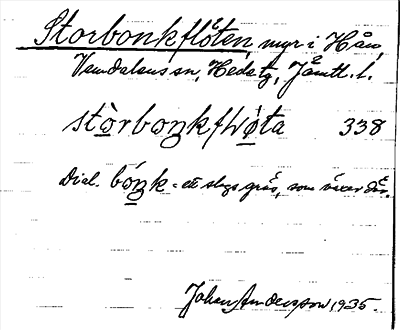 Storbonkflöten, myr i Hån,
Vemdalens sn, Hede tg, Jämtl. l.
stòrboŋkflöta 338
Dial. bóŋk = ett slags gräs, som växer där.
Johan Andersson 1935.